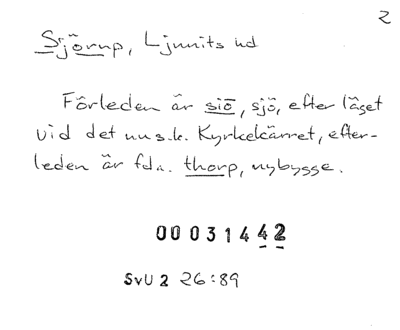 2
Sjörup, Ljunits hd
Förleden är siö, sjö, efter läget
vid det nu s.k. Kyrkekärret, efter-
leden är fda. thorp, nybygge.
00031442
SvU 2 26:89